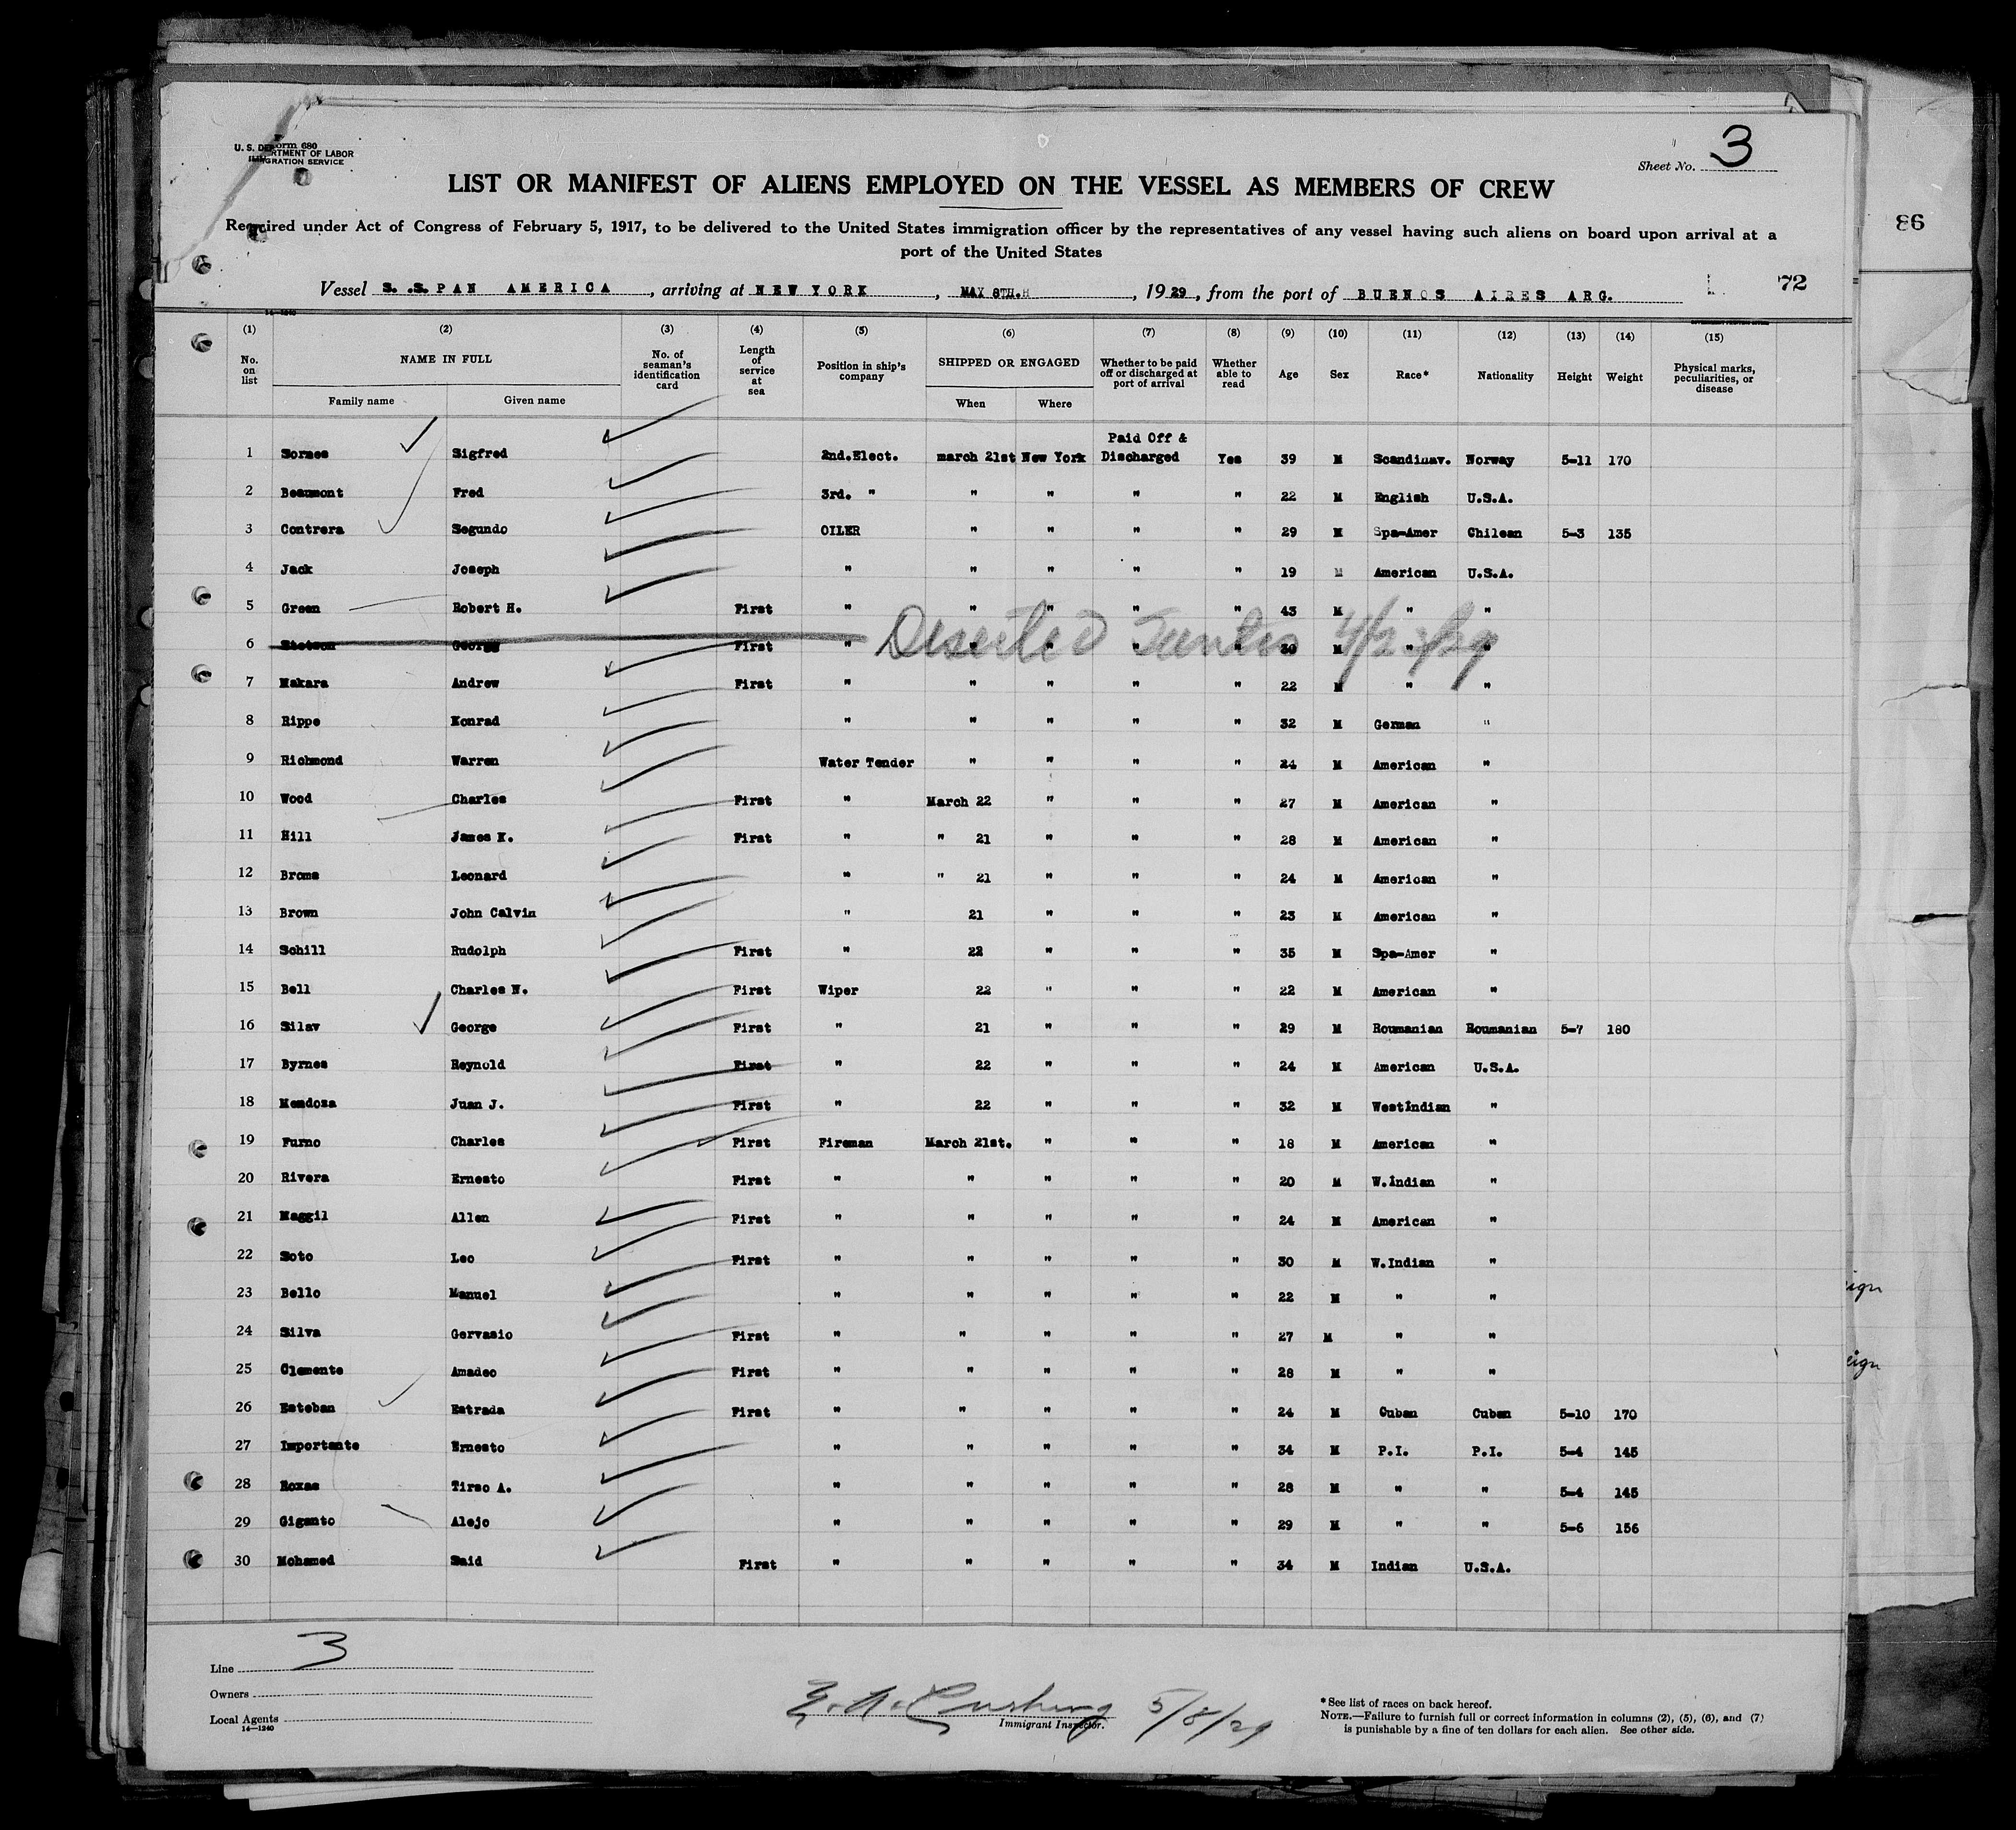 Form 680
U. S. DEPARTMENT OF LABOR
IMMIGRATION SERVICE
Sheet No. 3
LIST OR MANIFEST OF ALIENS EMPLOYED ON THE VESSEL AS MEMBERS OF CREW
Required under Act of Congress of February 5, 1917, to be delivered to the United States immigration officer by the representatives of any vessel having such aliens on board upon arrival at a
port of the United States
86
Vessel S. S. PAN AMERICA, arriving at NEW YORK, MAY 8TH., 1929, from the port of BUENOS AIRES ARG. 72
14-1240
(1) (2) (3) (4) (5) (6) (7) (8) (9) (10) (11) (12) (13) (14) (15)
No. on list NAME IN FULL No. of seaman's identification card Length of service at sea Position in ship's company SHIPPED OR ENGAGED Whether to be paid off or discharged at port of arrival Whether able to read Age Sex Race* Nationality Height Weight Physical marks, peculiarities, or disease
Family name Given name When Where
1 Sornes Sigfred 2nd.Elect. march 21st New York Paid Off & Discharged Yes 39 M Scandinav. Norway 5-11 170
2 Beaumont Fred 3rd. " " " " " 22 M English U.S.A.
3 Contrera Segundo OILER " " " " 29 M Spa-Amer Chilean 5-3 135
4 Jack Joseph " " " " " 19 M American U.S.A.
5 Green Robert H. First " " " " " 43 M " "
6 Stetson George First " " " " " 30 M " "
Deserted 4/2/29
7 Makara Andrew First " " " " " 22 M " "
8 Rippe Konrad " " " " " 32 M German "
9 Richmond Warren Water Tender " " " " 24 M American "
10 Wood Charles First " March 22 " " " 27 M American "
11 Hill James K. First " " 21 " " " 28 M American "
12 Broms Leonard " " 21 " " " 24 M American "
13 Brown John Calvin " 21 " " " 23 M American "
14 Schill Rudolph First " 22 " " " 35 M Spa-Amer "
15 Bell Charles N. First Wiper 22 " " " 22 M American "
16 Silav George First " 21 " " " 29 M Roumanian Roumanian 5-7 180
17 Byrnes Reynold First " 22 " " " 24 M American U.S.A.
18 Mendoza Juan J. First " 22 " " " 32 M WestIndian "
19 Furno Charles First Fireman March 21st. " " " 18 M American "
20 Rivera Ernesto First " " " " " 20 M W.Indian "
21 Maggil Allen First " " " " " 24 M American "
22 Soto Leo First " " " " " 30 M W.Indian "
23 Bello Manuel " " " " " 22 M " "
24 Silva Gervasio First " " " " " 27 M " "
25 Clemente Amadeo First " " " " " 28 M " "
26 Esteban Estrada First " " " " " 24 M Cuban Cuban 5-10 170
27 Importante Ernesto " " " " " 34 M P.I. P.I. 5-4 145
28 Roxas Tirso A. " " " " " 28 M " " 5-4 145
29 Giganto Alejo " " " " " 29 M " " 5-6 156
30 Mohamed Said First " " " " " 34 M Indian U.S.A.
Line 3
Owners
Local Agents
14-1240
E. A. Cushing 5/8/29
Immigrant Inspector.
*See list of races on back hereof.
NOTE.—Failure to furnish full or correct information in columns (2), (5), (6), and (7)
is punishable by a fine of ten dollars for each alien. See other side.